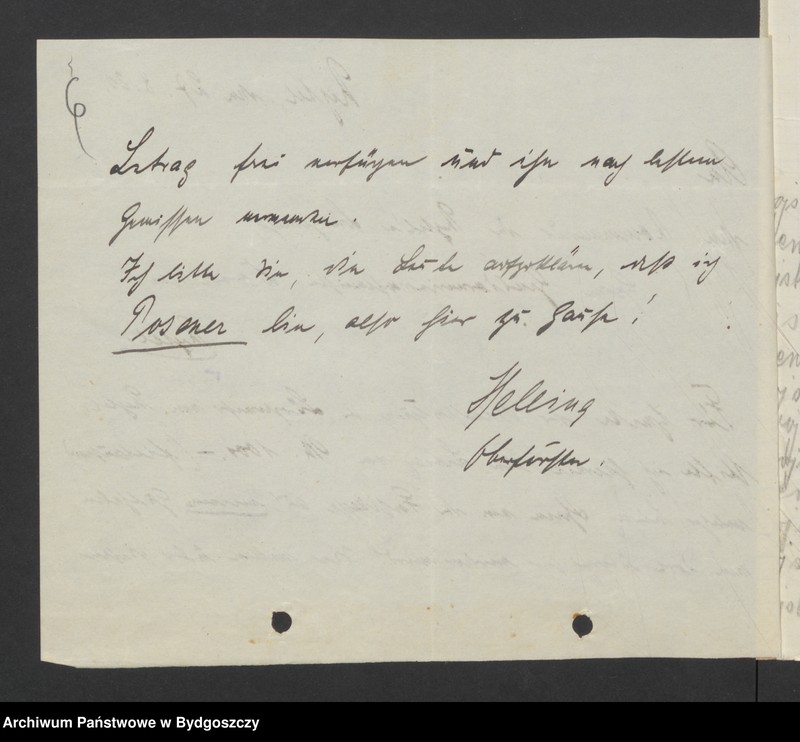 6
Betrag frei verfügen und ihn nach bestem
Gewissen verwenden.
Ich bitte Sie, die Leute aufzuklären, daß ich
Posener bin, also hier zu Hause!
Helling
Oberförster.
Archiwum Państwowe w Bydgoszczy